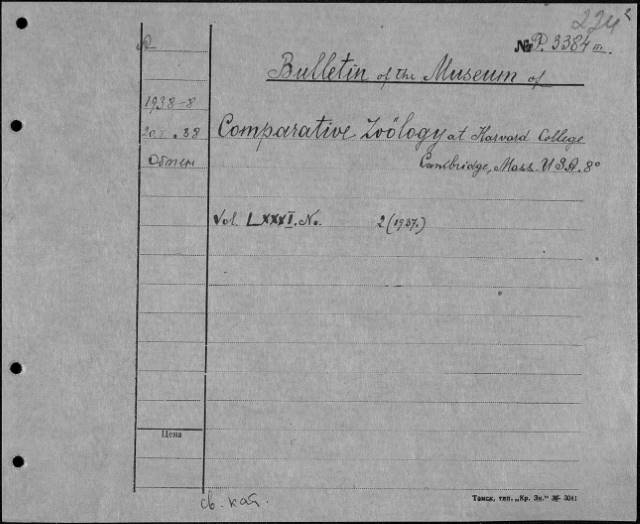 224
№ P. 3384 III.
Bulletin of the Museum of
1938-8
38 Comparative Zoölogy at Harvard College
Обмен Cambridge, Mass. USA. 8°
Vol. LXXXI. No. 2 (1937.)
Цена
св. кат.
Томск, тип. „Кр. Зн." № 3041